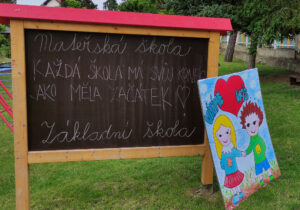 Mateřská škola
KAŽDÁ ŠKOLA MÁ SVŮJ KONEC
AKO MĚLA ZAČÁTEK!
Základní škola